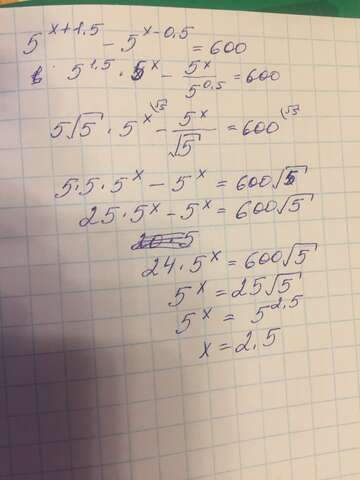 5^{x+1.5} - 5^{x-0.5} = 600
5^{1.5} · 5^x - 5^x/5^{0.5} = 600
5√5 · 5^x^{(√5} - 5^x/√5 = 600^{(√5}
5·5·5^x - 5^x = 600√5
25·5^x - 5^x = 600√5
24·5^x = 600√5
5^x = 25√5
5^x = 5^{2.5}
x = 2.5